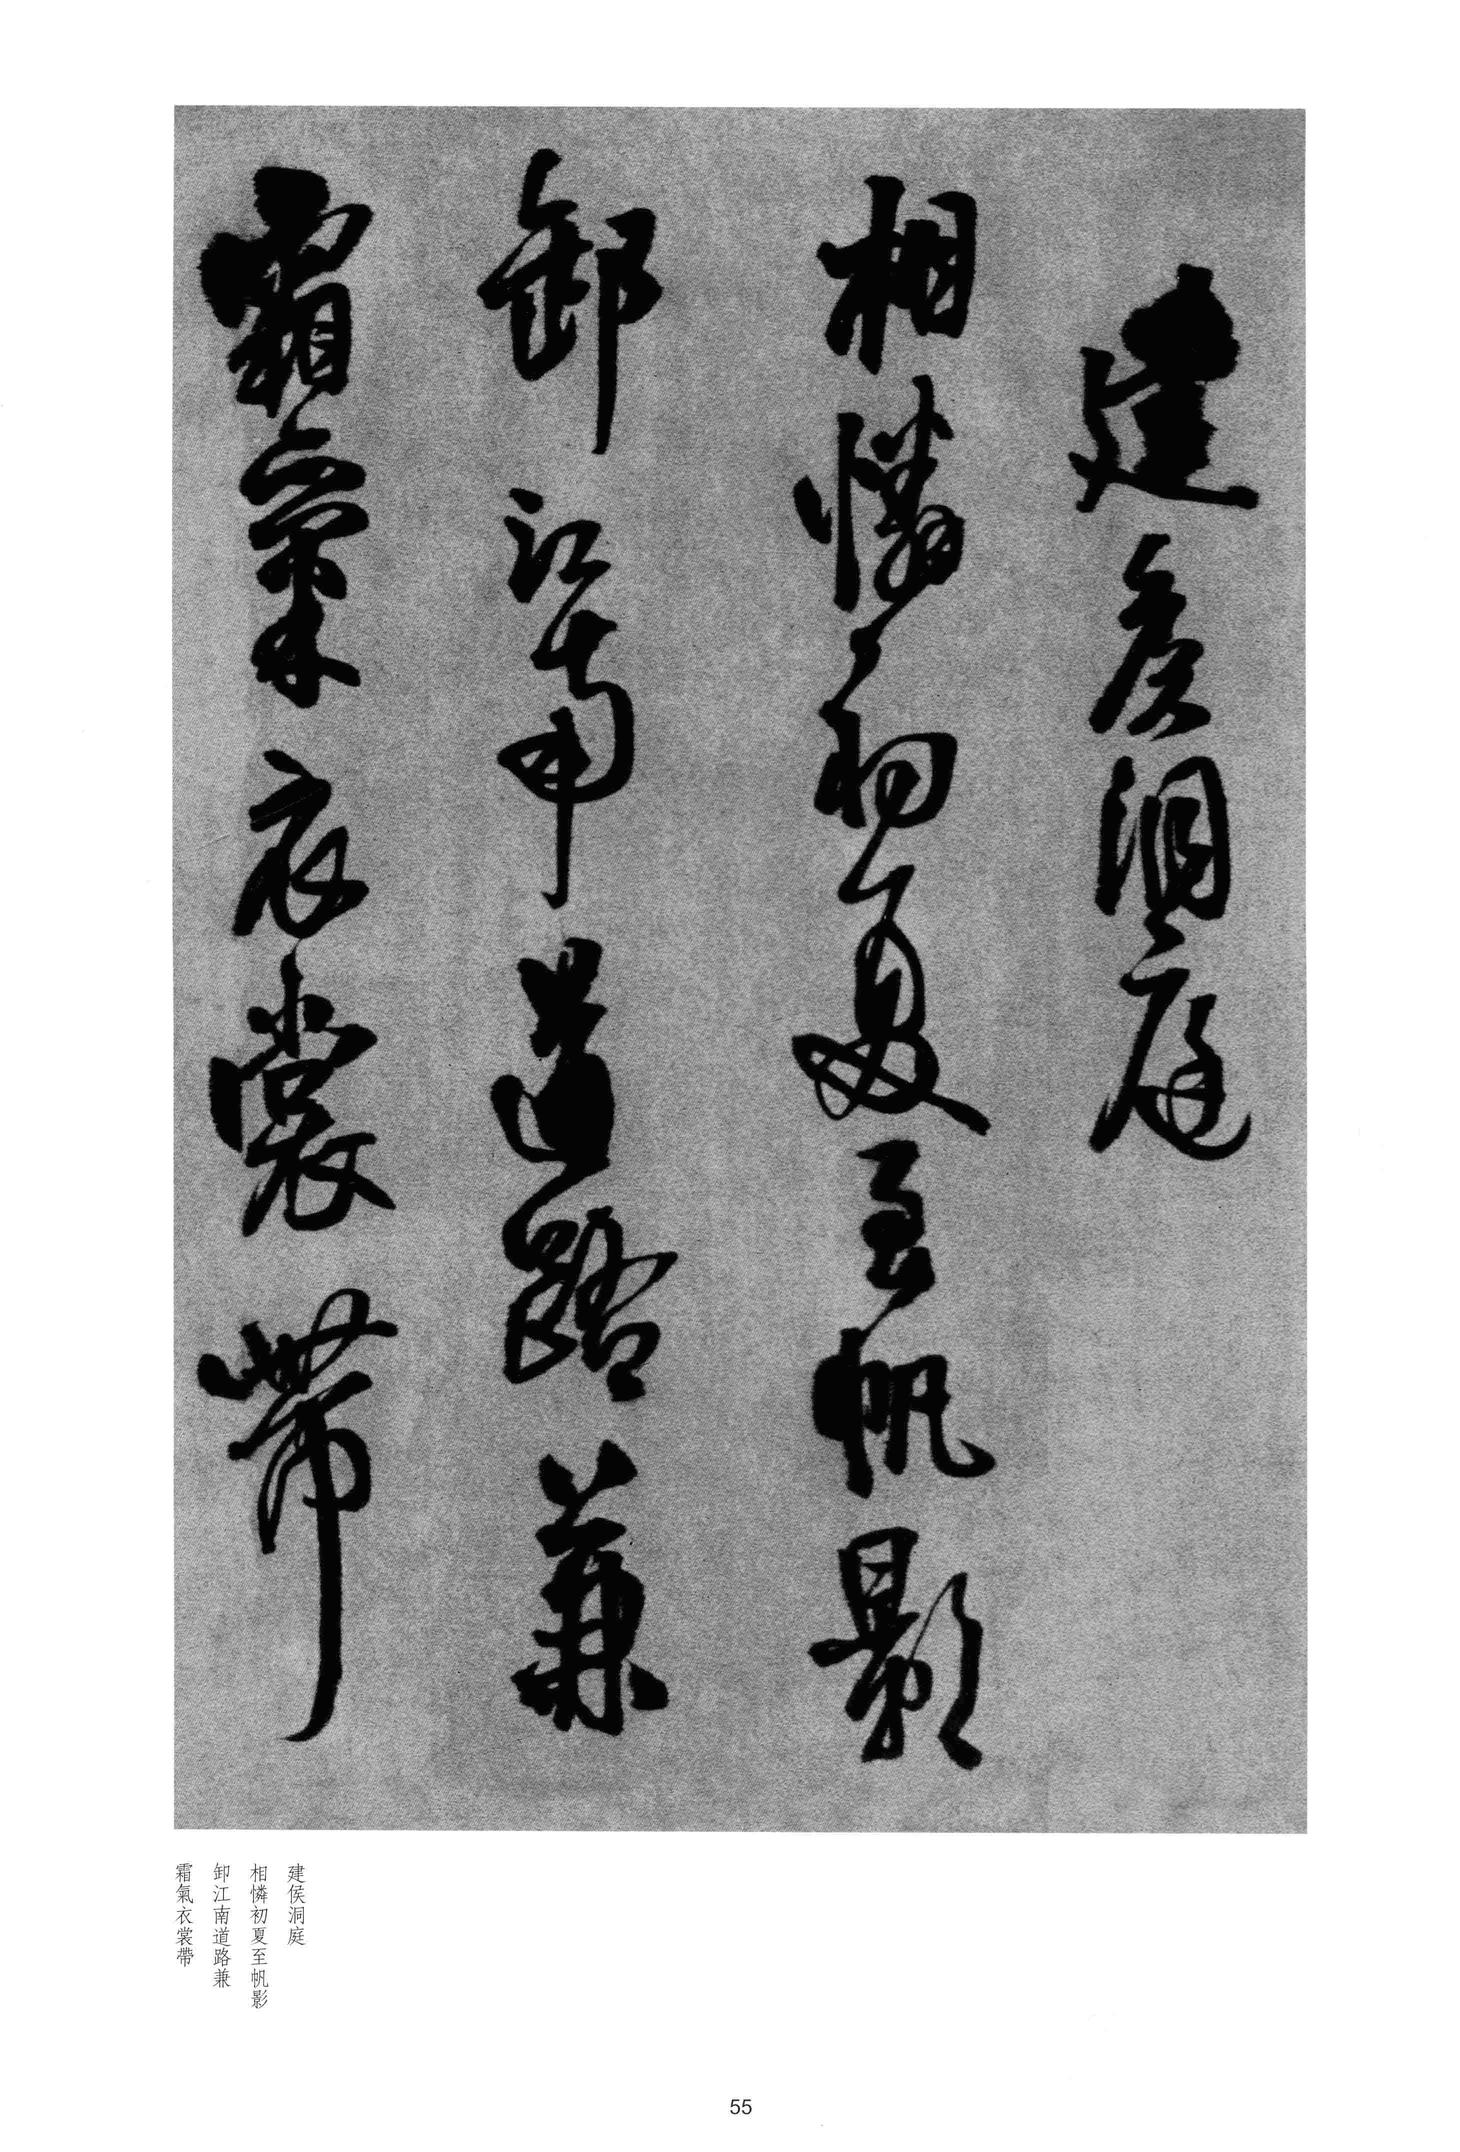 建侯洞庭
相憐初夏至帆影
卸江南道路兼
霜氣衣裳帶
建侯洞庭
相憐初夏至帆影
卸江南道路兼
霜氣衣裳帶
55